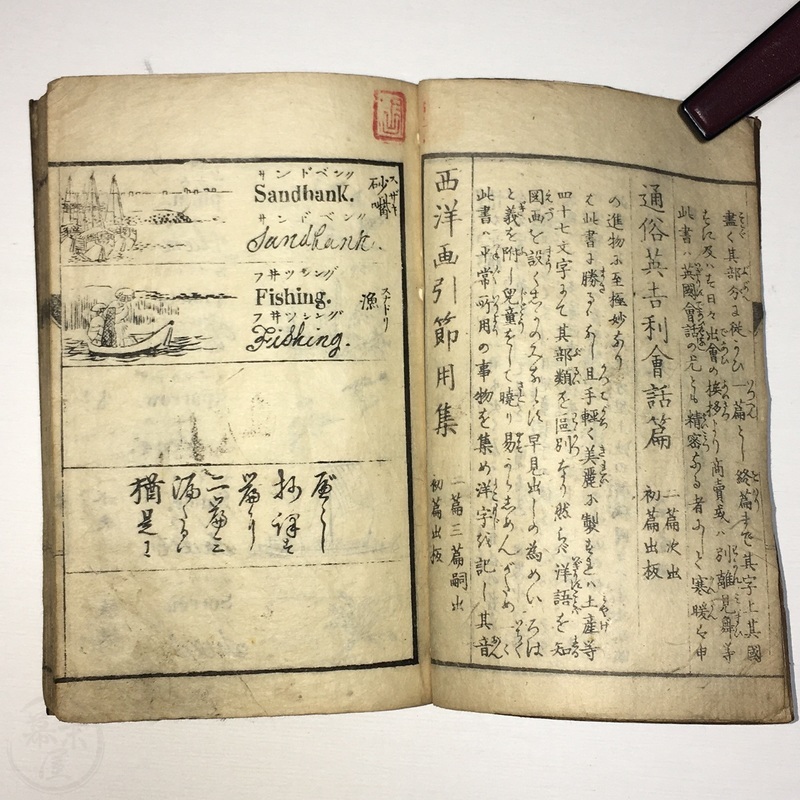 サンドベンク
Sandbank.
サンドベンク
Sandbank.
スザキ
砂嘴
フ井ツシング
Fishing.
フ井ツシング
Fishing.
スナドリ
漁
猶是に
漏るハ
二篇三
篇より
抄譯す
べし
西洋画引節用集
初篇出板
二篇三篇嗣出
此書ハ平常所用の事物を集め洋字を記し其音
と義を附し兒童をして曉り易からしめんがため
図画を設く 早見出しの為めいろは
四十七文字にて其部類を區別 然らバ洋語を知
るは此書に勝るハなし且手輕く美麗に製すれバ土産等
の進物に至極妙なり
通俗英吉利會話篇
初篇出板
二篇次出
此書ハ英國會話の尤とも精密なる者にして寒暖を申
すに及ばず日々出會の挨拶より商賣或ハ別離見舞等
盡く其部分に從がひ一篇とし終篇まで其字上其國